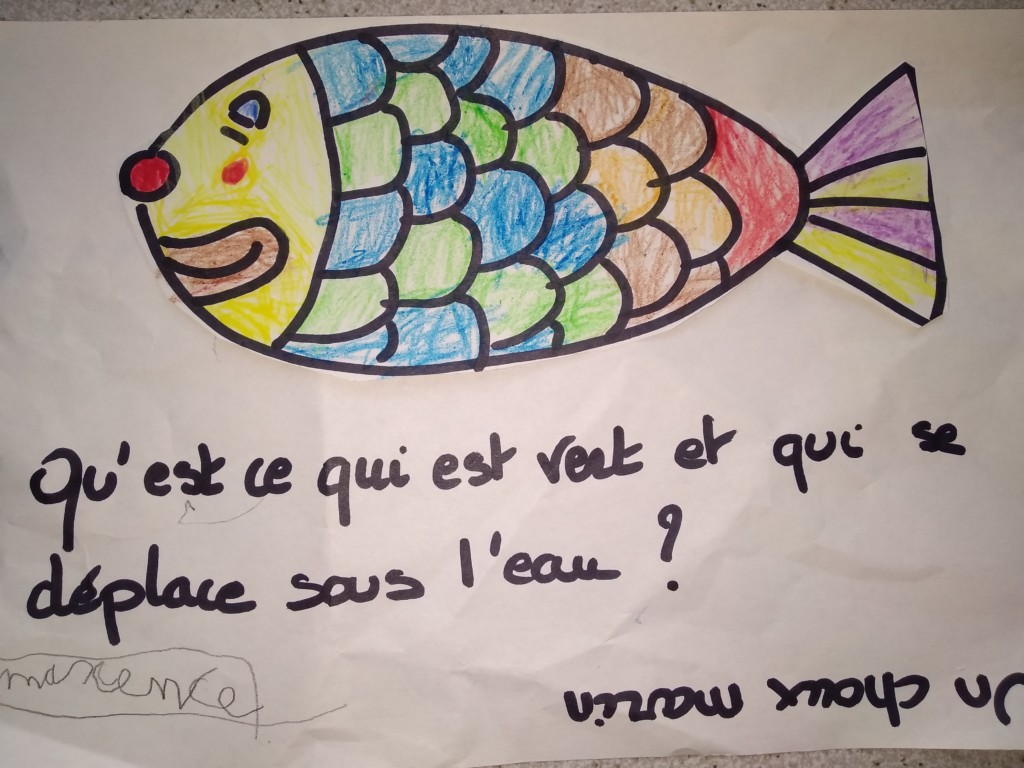 Qu'est ce qui est vert et qui se
déplace sous l'eau ?
maxence
Un choux marin